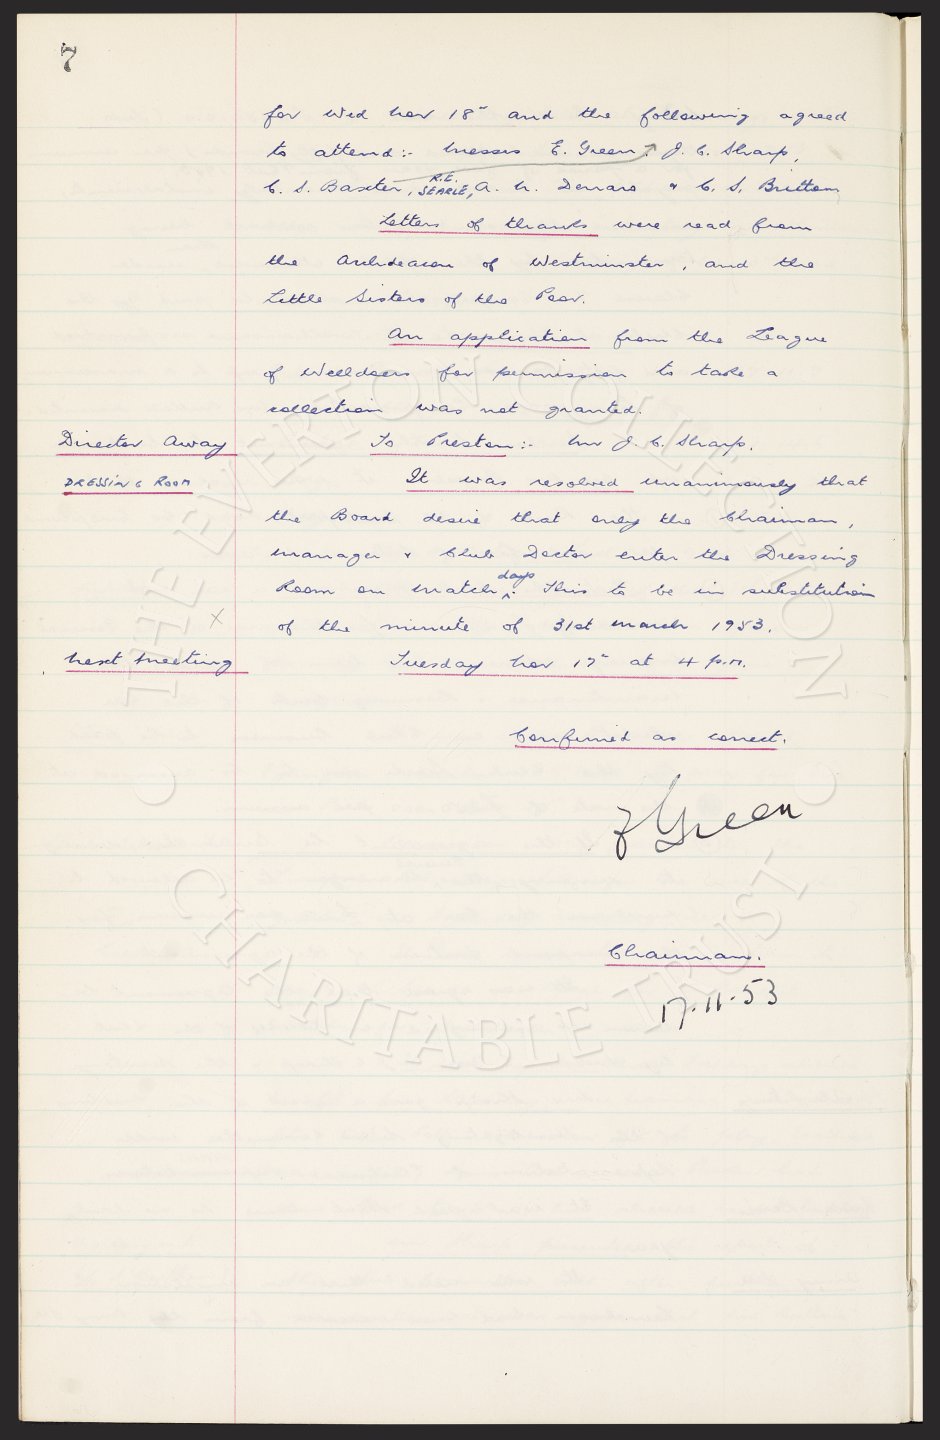 7
for Wed Nov 18" and the following agreed
to attend:- Messrs E. Green. J. C. Sharp,
C. S. Baxter, R.E. SEARLE, A. W. Denaro & C. S. Brittom
Letters of thanks were read from
the Archdeacon of Westminster, and the
Little Sisters of the Poor.
An application from the League
of Welldoers for permission to take a
collection was not granted.
Director Away To Preston:- Mr J. C. Sharp.
DRESSING ROOM It was resolved unanimously that
the Board desire that only the Chairman,
manager & Club Doctor enter the Dressing
Room on match days. This to be in substitution
of the minute of 31st March 1953.
X
Next Meeting Tuesday Nov 17" at 4 p.m.
Confirmed as correct.
E Green
Chairman.
17.11.53
THE EVERTON COLLECTION
CHARITABLE TRUST